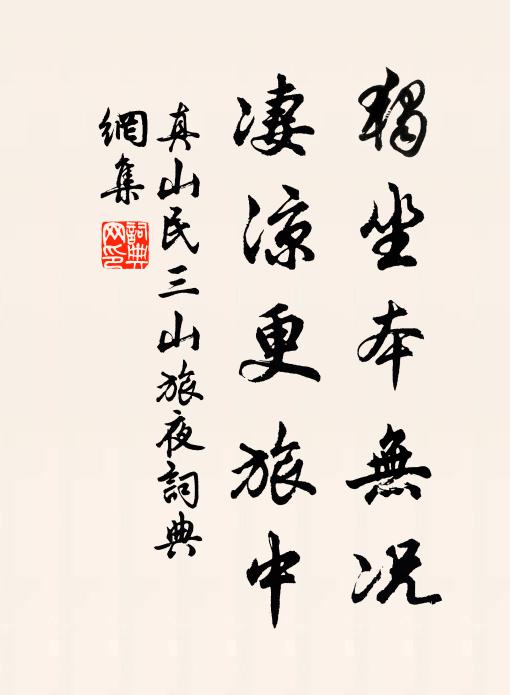 獨坐本無况
淒涼更旅中
真山民三山旅夜詞典
網集
詞典
网印